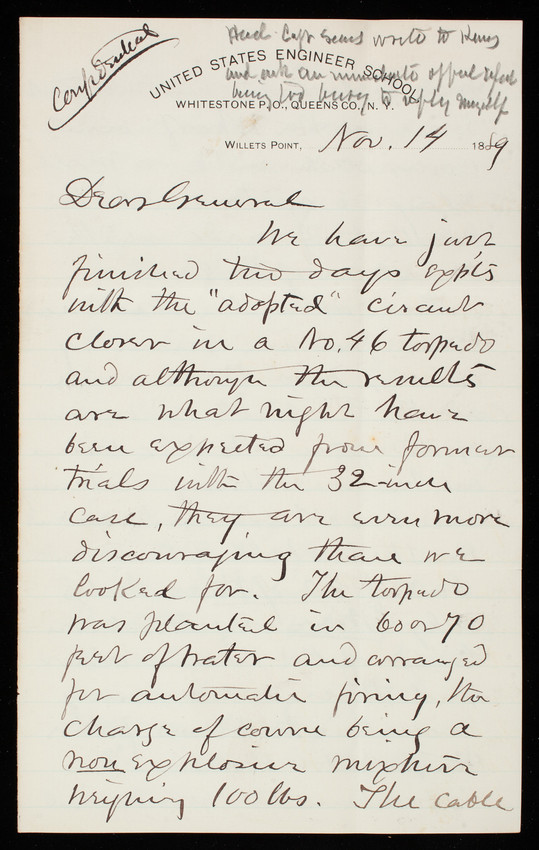 Confidential
Had Capt Sears write to King
and ask an immediate
being too busy to reply myself
UNITED STATES ENGINEER SCHOOL,
WHITESTONE P.O., QUEENS CO., N. Y.
WILLETS POINT, Nov. 14 1889
Dear General
We have just
finished two days expts
with the "adopted" circuit
closer in a No. 46 torpedo
and although the results
are what might have
been expected from former
trials with the 32-inch
case, they are even more
discouraging than we
looked for. The torpedo
was planted in 60 or 70
feet of water and arranged
for automatic firing, the
charge of course being a
non explosive mixture
weighing 100 lbs. The cable